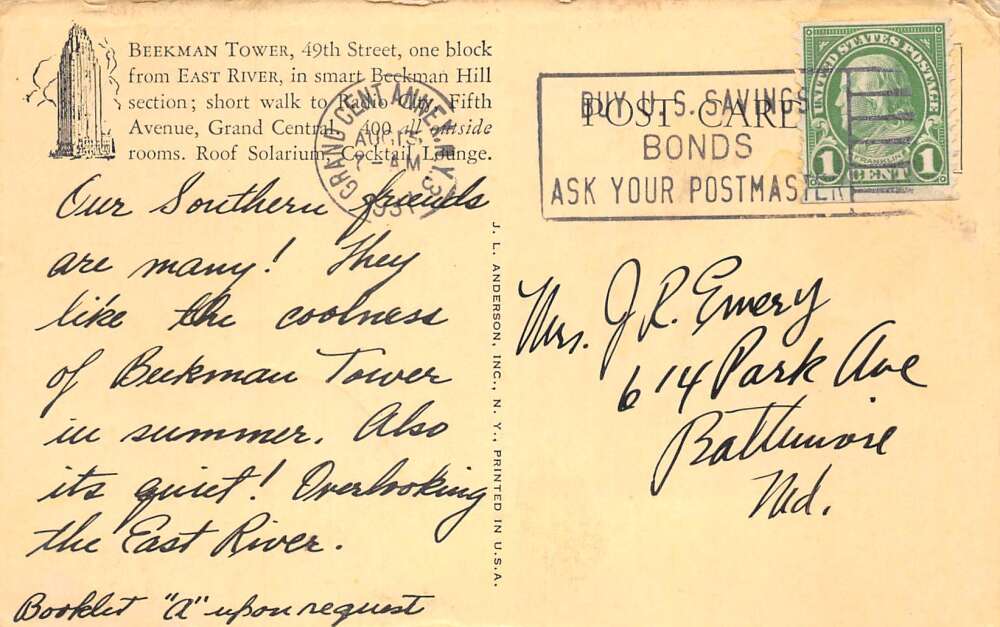 BEEKMAN TOWER, 49th Street, one block
from EAST RIVER, in smart Beekman Hill
section; short walk to Radio City, Fifth
Avenue, Grand Central. 400 all outside
rooms. Roof Solarium, Cocktail Lounge.
Our Southern friends
are many! They
like the coolness
of Beekman Tower
in summer. Also
its quiet! Overlooking
the East River.
Booklet "A" upon request
J. L. ANDERSON, INC., N. Y., PRINTED IN U.S.A.
GRAND CENT. ANNEX N.Y.
AUG 13
AM
POST CARD
BUY U.S. SAVINGS
BONDS
ASK YOUR POSTMASTER
UNITED STATES POSTAGE
FRANKLIN
1 CENT 1
Mrs. J. R. Emery
614 Park Ave
Baltimore
Md.